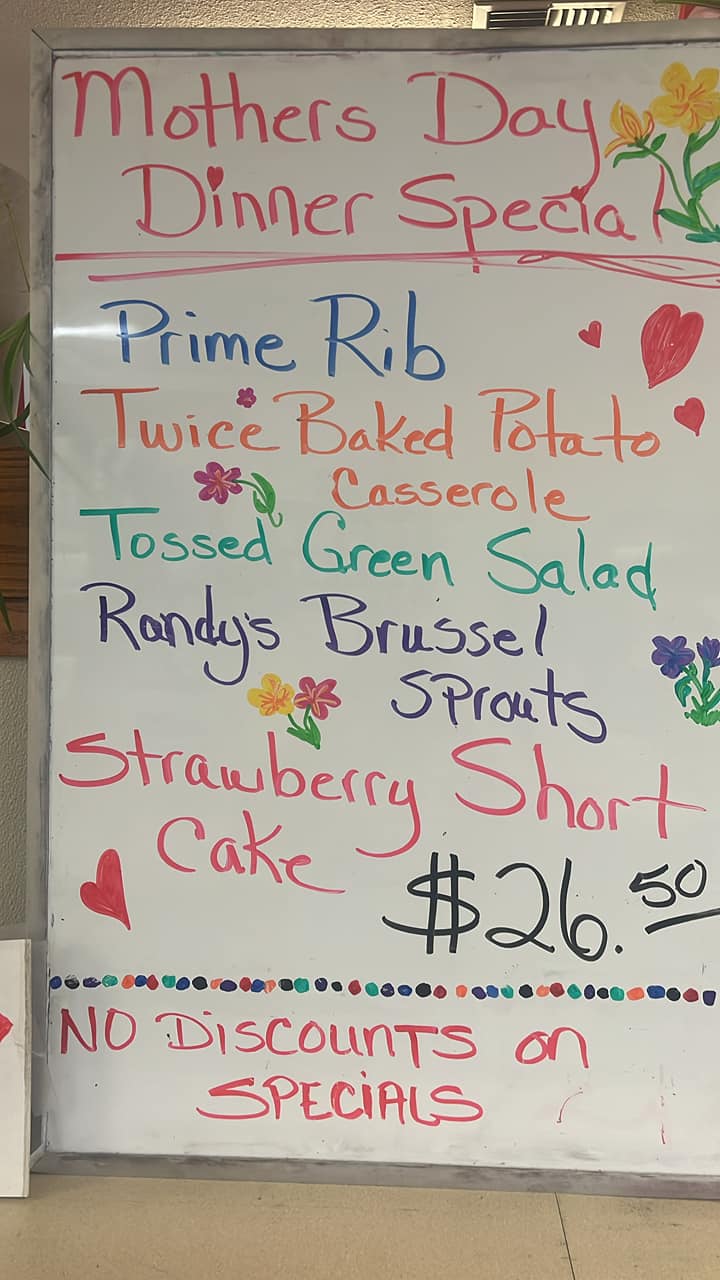 Mothers Day
Dinner Special
Prime Rib
Twice Baked Potato
Casserole
Tossed Green Salad
Randy's Brussel
Sprouts
Strawberry Short
Cake
$26.50
NO DiSCOUNTS on
SPECiALS